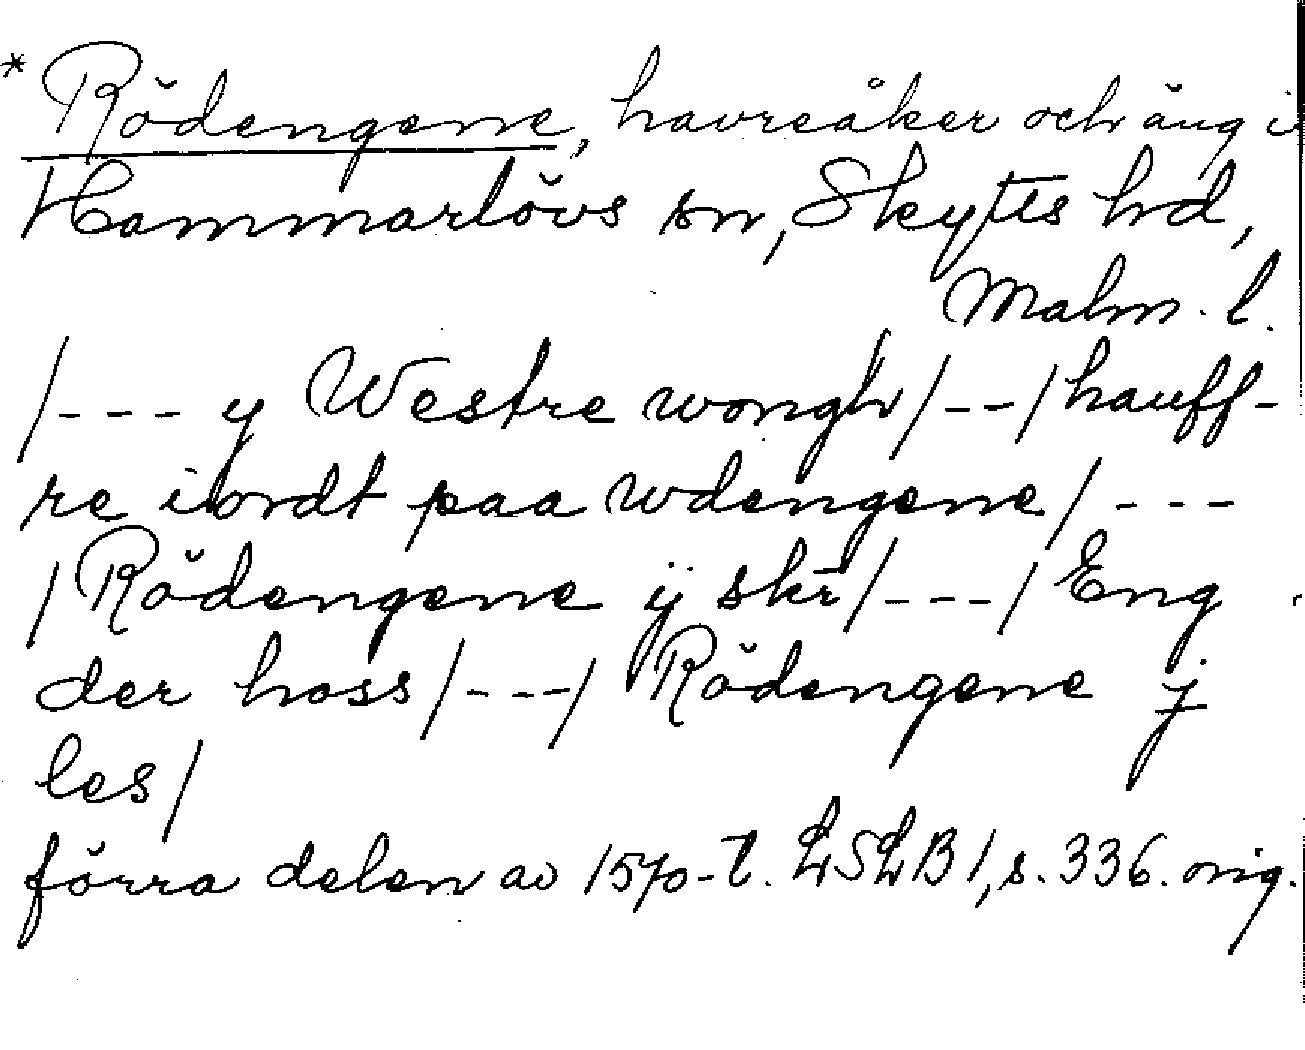 * Rödengene, havreåker och äng i
Hammarlövs sn, Skytts hd,
Malm. l.
/--- y Westre wongh/--/hauff-
re iordt paa wdengene/---
/Rödengene ÿ skr̄/---/Eng
der hoss/---/Rödengene j
les/
förra delen av 1570-t. LSLB 1, s. 336. orig.